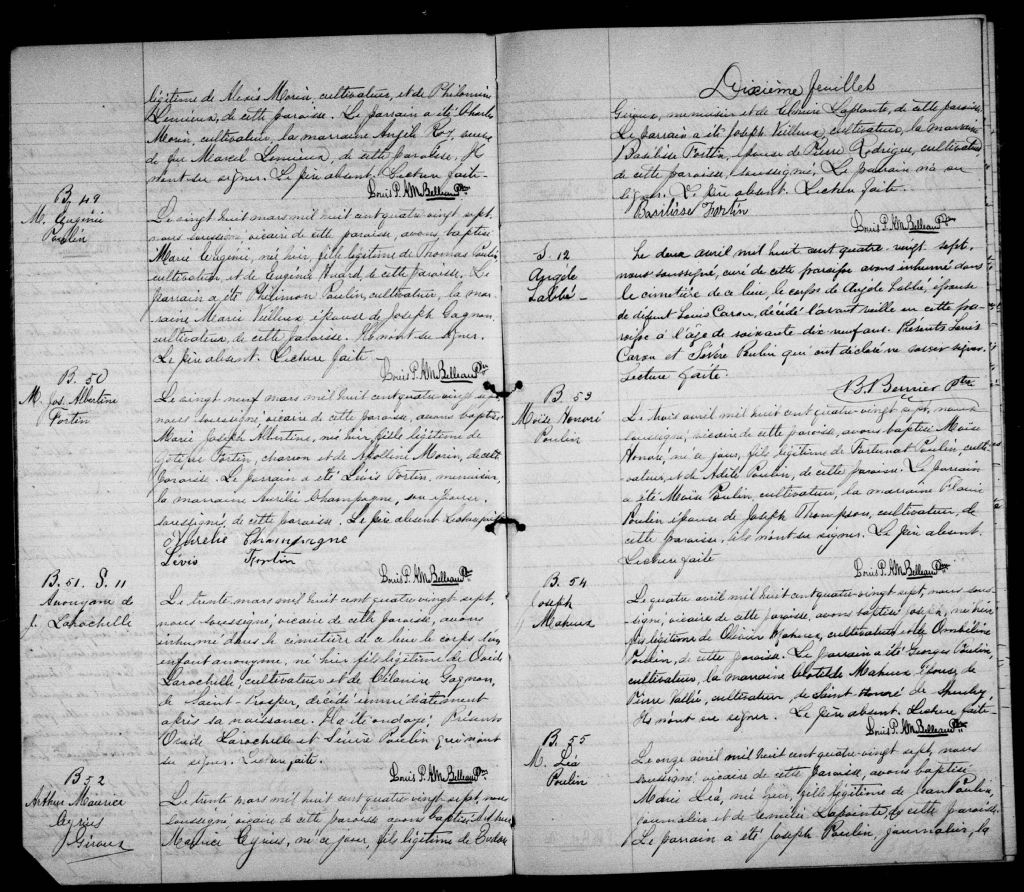 légitime de Alexis Morin, cultivateur, et de Philomène
Lemieux, de cette paroisse. Le parrain a été Charles
Morin, cultivateur, la marraine Angèle Roy, veuve
de feu Marcel Lemieux, de cette paroisse,
n'ont su signer. Le père absent. Lecture faite.
Louis P. H M. Belleau Ptre
B. 49
M. Eugénie
Poulin
Le vingt huit mars mil huit cent quatre-vingt sept,
nous soussigné vicaire de cette paroisse, avons baptisé
Marie Eugénie, née hier, fille légitime de Thomas Poulin
cultivateur et de Eugénie Huard de cette paroisse. Le
parrain a été Philémon Poulin, cultivateur, la mar-
raine Marie Veilleux épouse de Joseph Gagnon,
cultivateur, de cette paroisse. Ils n'ont su signer.
Le père absent. Lecture faite.
Louis P. H M. Belleau Ptre
B. 50
M. Jos. Albertine
Fortin
Le vingt neuf mars mil huit cent quatre-vingt sept
nous soussigné, vicaire de cette paroisse, avons baptisé
Marie Joseph Albertine, née hier, fille légitime de
Fortin, charron et de Apolline Morin, de cette
Paroisse. Le parrain a été Lévis Fortin, menuisier,
la marraine Aurélie Champagne, son épouse,
soussignés, de cette paroisse. Le père absent. Lecture faite
Aurélie Champagne
Lévis Fortin
Louis P. H M. Belleau Ptre
B. 51. S. 11
Anonyme de
J. Larochelle
Le trente mars mil huit cent quatre-vingt sept,
nous soussigné, vicaire de cette paroisse, avons
inhumé dans le cimetière de ce lieu le corps d'un
enfant anonyme, né hier fils légitime de Ovide
Larochelle, cultivateur et de Célanire Gagnon,
de Saint-Prosper, décédé immédiatement
après sa naissance. Il a été ondoyé. Présents
Ovide Larochelle et Sévère Poulin qui n'ont
su signer. Lecture faite.
Louis P. H M. Belleau Ptre
B 52
Arthur Maurice
Cyrius
Giroux
Le trente mars mil huit cent quatre-vingt sept, nous
soussigné vicaire de cette paroisse avons baptisé Arthur
Maurice Cyrius, né ce jour, fils légitime de
Dixième feuillet
Giroux, menuisier et de Elmire Laplante, de cette paroisse
Le parrain a été Joseph Veilleux, cultivateur, la marraine
Basilisse Fortin, épouse de Pierre Rodrigue, cultivateur
de cette paroisse, soussignée, Le parrain n'a su
signer. Le père absent. Lecture faite.
Basilisse Fortin
Louis P. H M. Belleau Ptre
S. 12
Angèle
Labbé
Le deux avril mil huit cent quatre vingt sept,
nous soussigné, curé de cette paroisse avons inhumé dans
le cimetière de ce lieu, le corps de Angèle Labbé, épouse
de défunt Louis Caron, décédé l'avant veille en cette pa-
roisse à l'âge de soixante dix neuf ans. Présents Louis
Caron et Sévère Poulin qui ont déclaré ne savoir signer.
Lecture faite.
B. Bernier Ptre
B. 53
Moïse Honoré
Poulin
Le trois avril mil huit cent quatre-vingt sept, nous
soussigné, vicaire de cette paroisse, avons baptisé Moïse
Honoré, né ce jour, fils légitime de Fortunat Poulin, culti-
vateur, et de Adèle Poulin, de cette paroisse. Le parrain
a été Moïse Poulin, cultivateur, la marraine
Poulin épouse de Joseph Thompson, cultivateur, de
cette paroisse, ils n'ont su signer. Le père absent.
Lecture faite
Louis P. H M. Belleau Ptre
B. 54
Joseph
Maheux
Le quatre avril mil huit cent quatre-vingt sept, nous sous-
signé, vicaire de cette paroisse, avons baptisé Joseph, né hier
fils légitime de Olivier Maheux, cultivateur et de Ombéline
Poulin, de cette paroisse. Le parrain a été Georges Poulin,
cultivateur, la marraine Clotilde Maheux épouse de
Pierre Vallée, cultivateur, de Saint Honoré de Shenley
Ils n'ont su signer. Le père absent. Lecture faite
Louis P. H M. Belleau Ptre
B. 55
M. Léa
Poulin
Le onze avril mil huit cent quatre-vingt sept, nous
soussigné vicaire de cette paroisse, avons baptisé
Marie Léa, née hier, fille légitime de Jean Poulin,
journalier et de Emélie Lapointe, de cette paroisse.
Le parrain a été Joseph Poulin, journalier, la